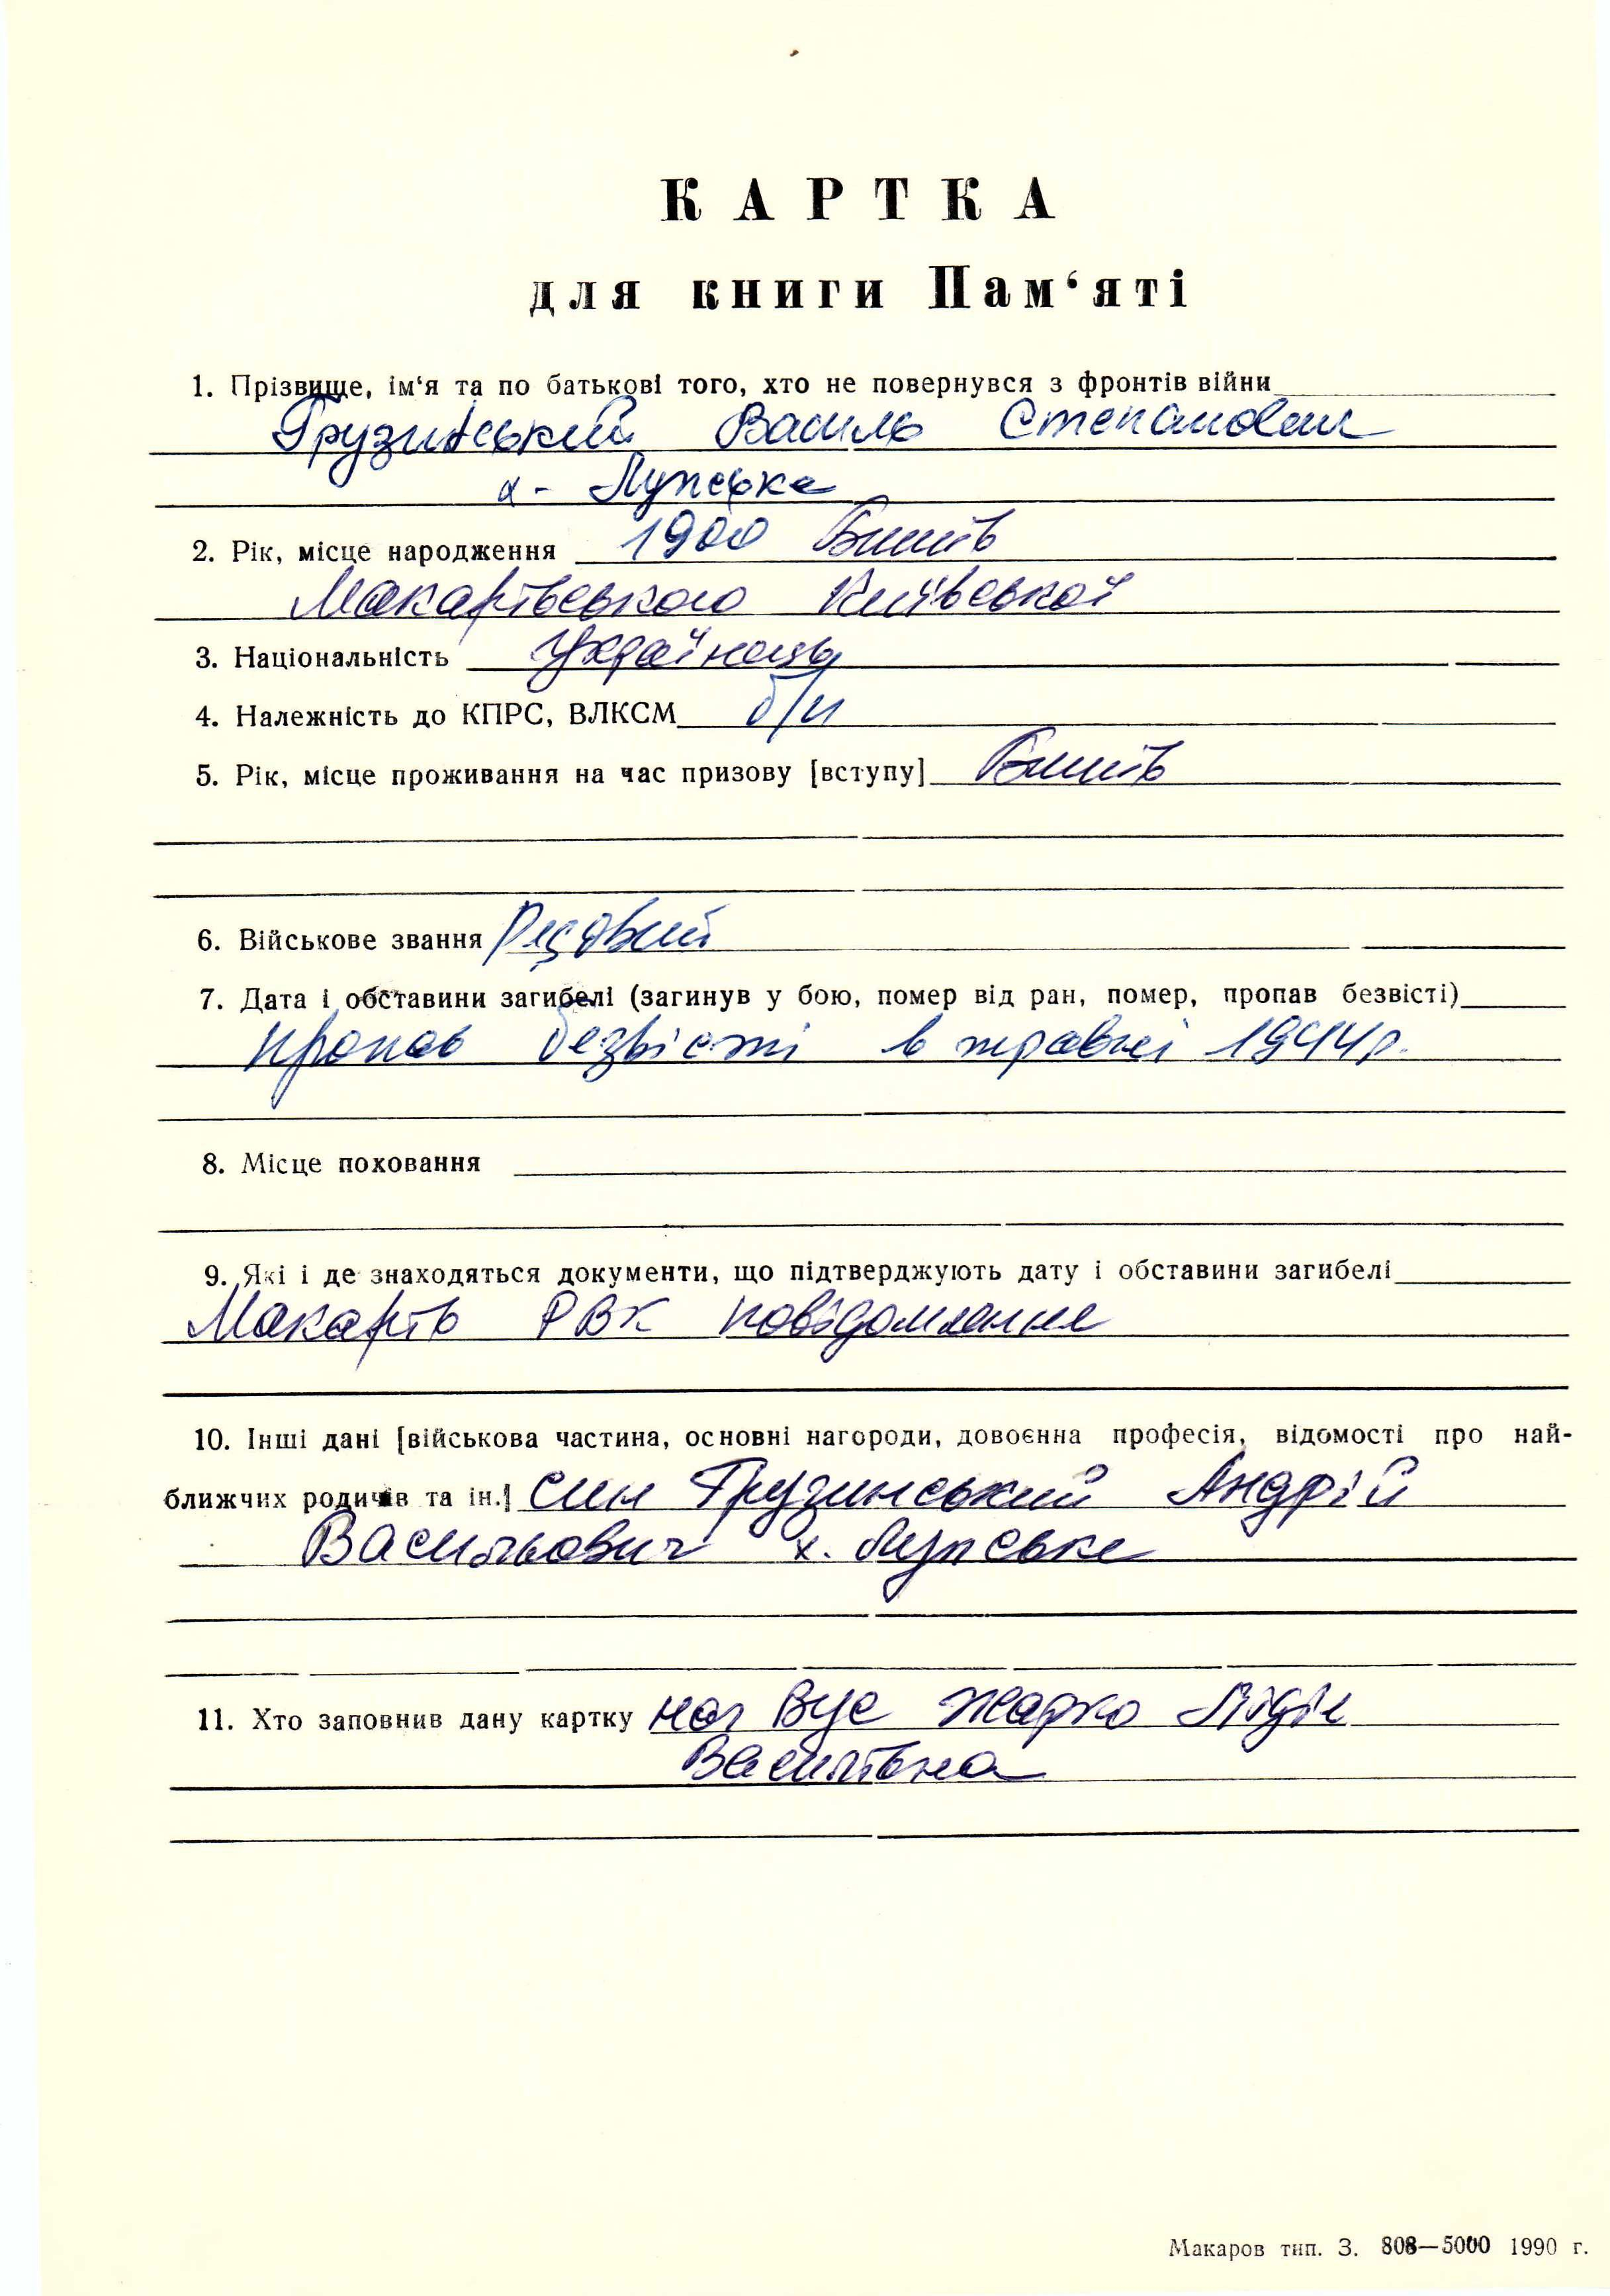 КАРТКА
для книги Пам‘яті
1. Прізвище, ім‘я та по батькові того, хто не повернувся з фронтів війни
Грузинський Василь Степанович
х- Лупське
2. Рік, місце народження 1900 Бишів
Макарівського Київської
3. Національність Українець
4. Належність до КПРС, ВЛКСМ б/п
5. Рік, місце проживання на час призову [вступу] Бишів
6. Військове звання Рядовий
7. Дата і обставини загибелі (загинув у бою, помер від ран, помер, пропав безвісті)
пропав безвісті в травні 1944р.
8. Місце поховання
9. Які і де знаходяться документи, що підтверджують дату і обставини загибелі
Макарів РВК повідомлення
10. Інші дані [військова частина, основні нагороди, довоєнна професія, відомості про най-
ближчих родичів та ін.] син Грузинський Андрій
Васильович х. Лупське
11. Хто заповнив дану картку нач ВУС Жарко Лідія
Василівна
Макаров тип. З. 808—5000 1990 г.